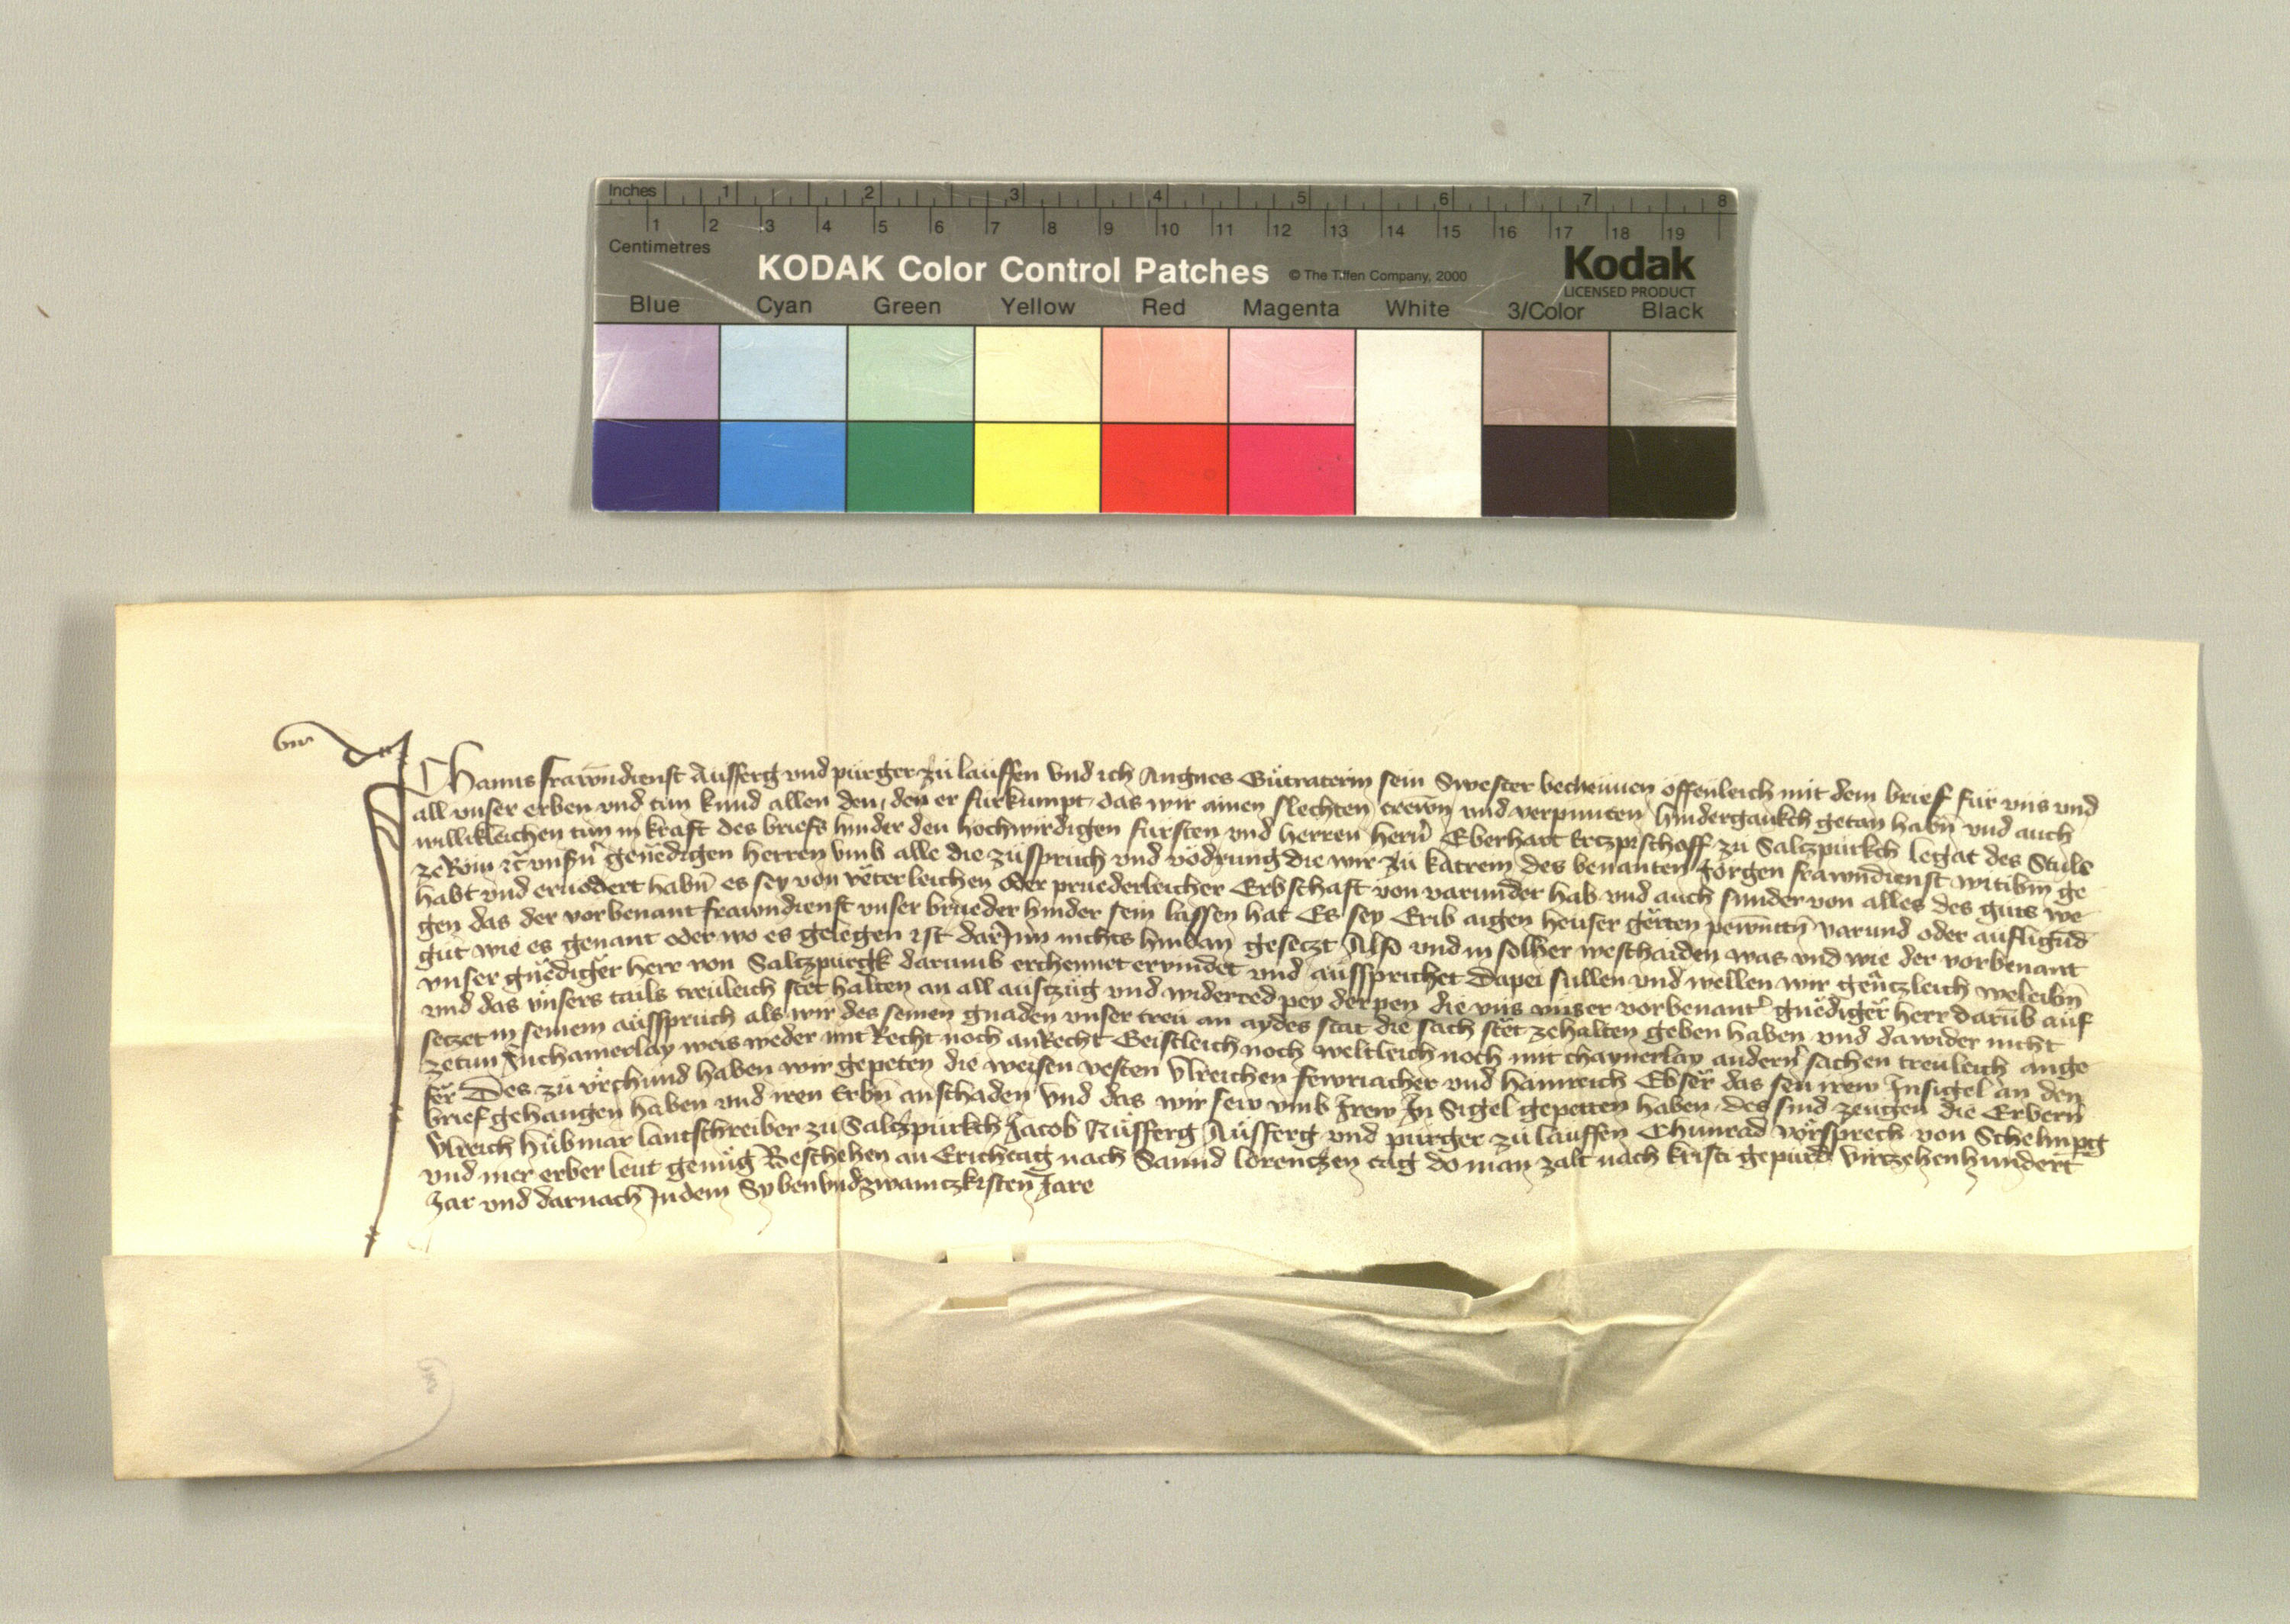 Inches 1 2 3 4 5 6 7 8
1 2 3 4 5 6 7 8 9 10 11 12 13 14 15 16 17 18 19
Centimetres
KODAK Color Control Patches © The Tiffen Company, 2000 Kodak
LICENSED PRODUCT
Blue Cyan Green Yellow Red Magenta White 3/Color Black
Ich Hanns frawndienst Aufferg und purger zu lauffen vnd ich Angnes Gutraterin sein Swester bechennen offenleich mit dem brief fur vns vnd
all vnser erben vnd tun kund allen den, den er furkumpt, das wir ainen slechten trewn vnd verpunten hindergankch getan habn vnd auch
willikleichen tun in kraft des briefs hinder den hochwirdigen fursten vnd herren hern Eberhart Ertzpischoff zu Saltzpurkch legat des Stuls
ze Rom vnsern genedigen herren vmb alle die zuspruch vnd vodrung die wir zu katrein des benanten Jorgen frawndienst witibin ge
habt vnd eruodert habn es sey von veterleichen oder pruederleicher Erbschaft von varunder hab vnd auch sunder von alles des guts we
gen das der vorbenant frawndienst vnser brueder hinder sein lassen hat Es sey Erib aigen heuser gerten pewntn varund oder aufligund
gut wie es genant oder wo es gelegen ist darInn nichts hindan gesetzt Also vnd in solher weschaiden was vnd wie der vorbenant
vnser gnediger herr von Saltzpurgk darumb erchennet ervindet vnd aussprichet Dapei sullen vnd wellen wir gentzleich weleibn
vnd das vnsers tails treuleich stet halten an all austzug vnd widerred pey der pen die vns vnser vorbenanter gnediger herr darub auf
setzet in seinem ausspruch als wir des seinen gnaden vnser treu an aydes stat die sach stet zehalten geben haben vnd dawider nicht
zetun Inchainerlay weis weder mit Recht noch an Recht Geistleich noch weltleich noch mit chaynerlay andern sachen treuleich ange
fer Des zu vrchund haben wir gepeten die weisen vesten Vlreichen fewriacher vnd hainreich Ebser das sey irew Insigel an den
brief gehangen haben vnd iren Erbn an schaden Vnd das wir sew vmb Irew In Sigel gepeten haben, des sind zeugen die Erbern
Vlreich hubmar lantschreiber zu Saltzpurkch Jacob Nufferg Aufferg vnd purger zu lauffen Chunrad vorsprech von
vnd mer erber leut genug Beschehen an Erichtag nach Sannd lorentzen tag do man zalt nach kristi gepurd virtzehenhundert
Jar vnd darnach Indem Sybenvndzwaintzkisten Jare